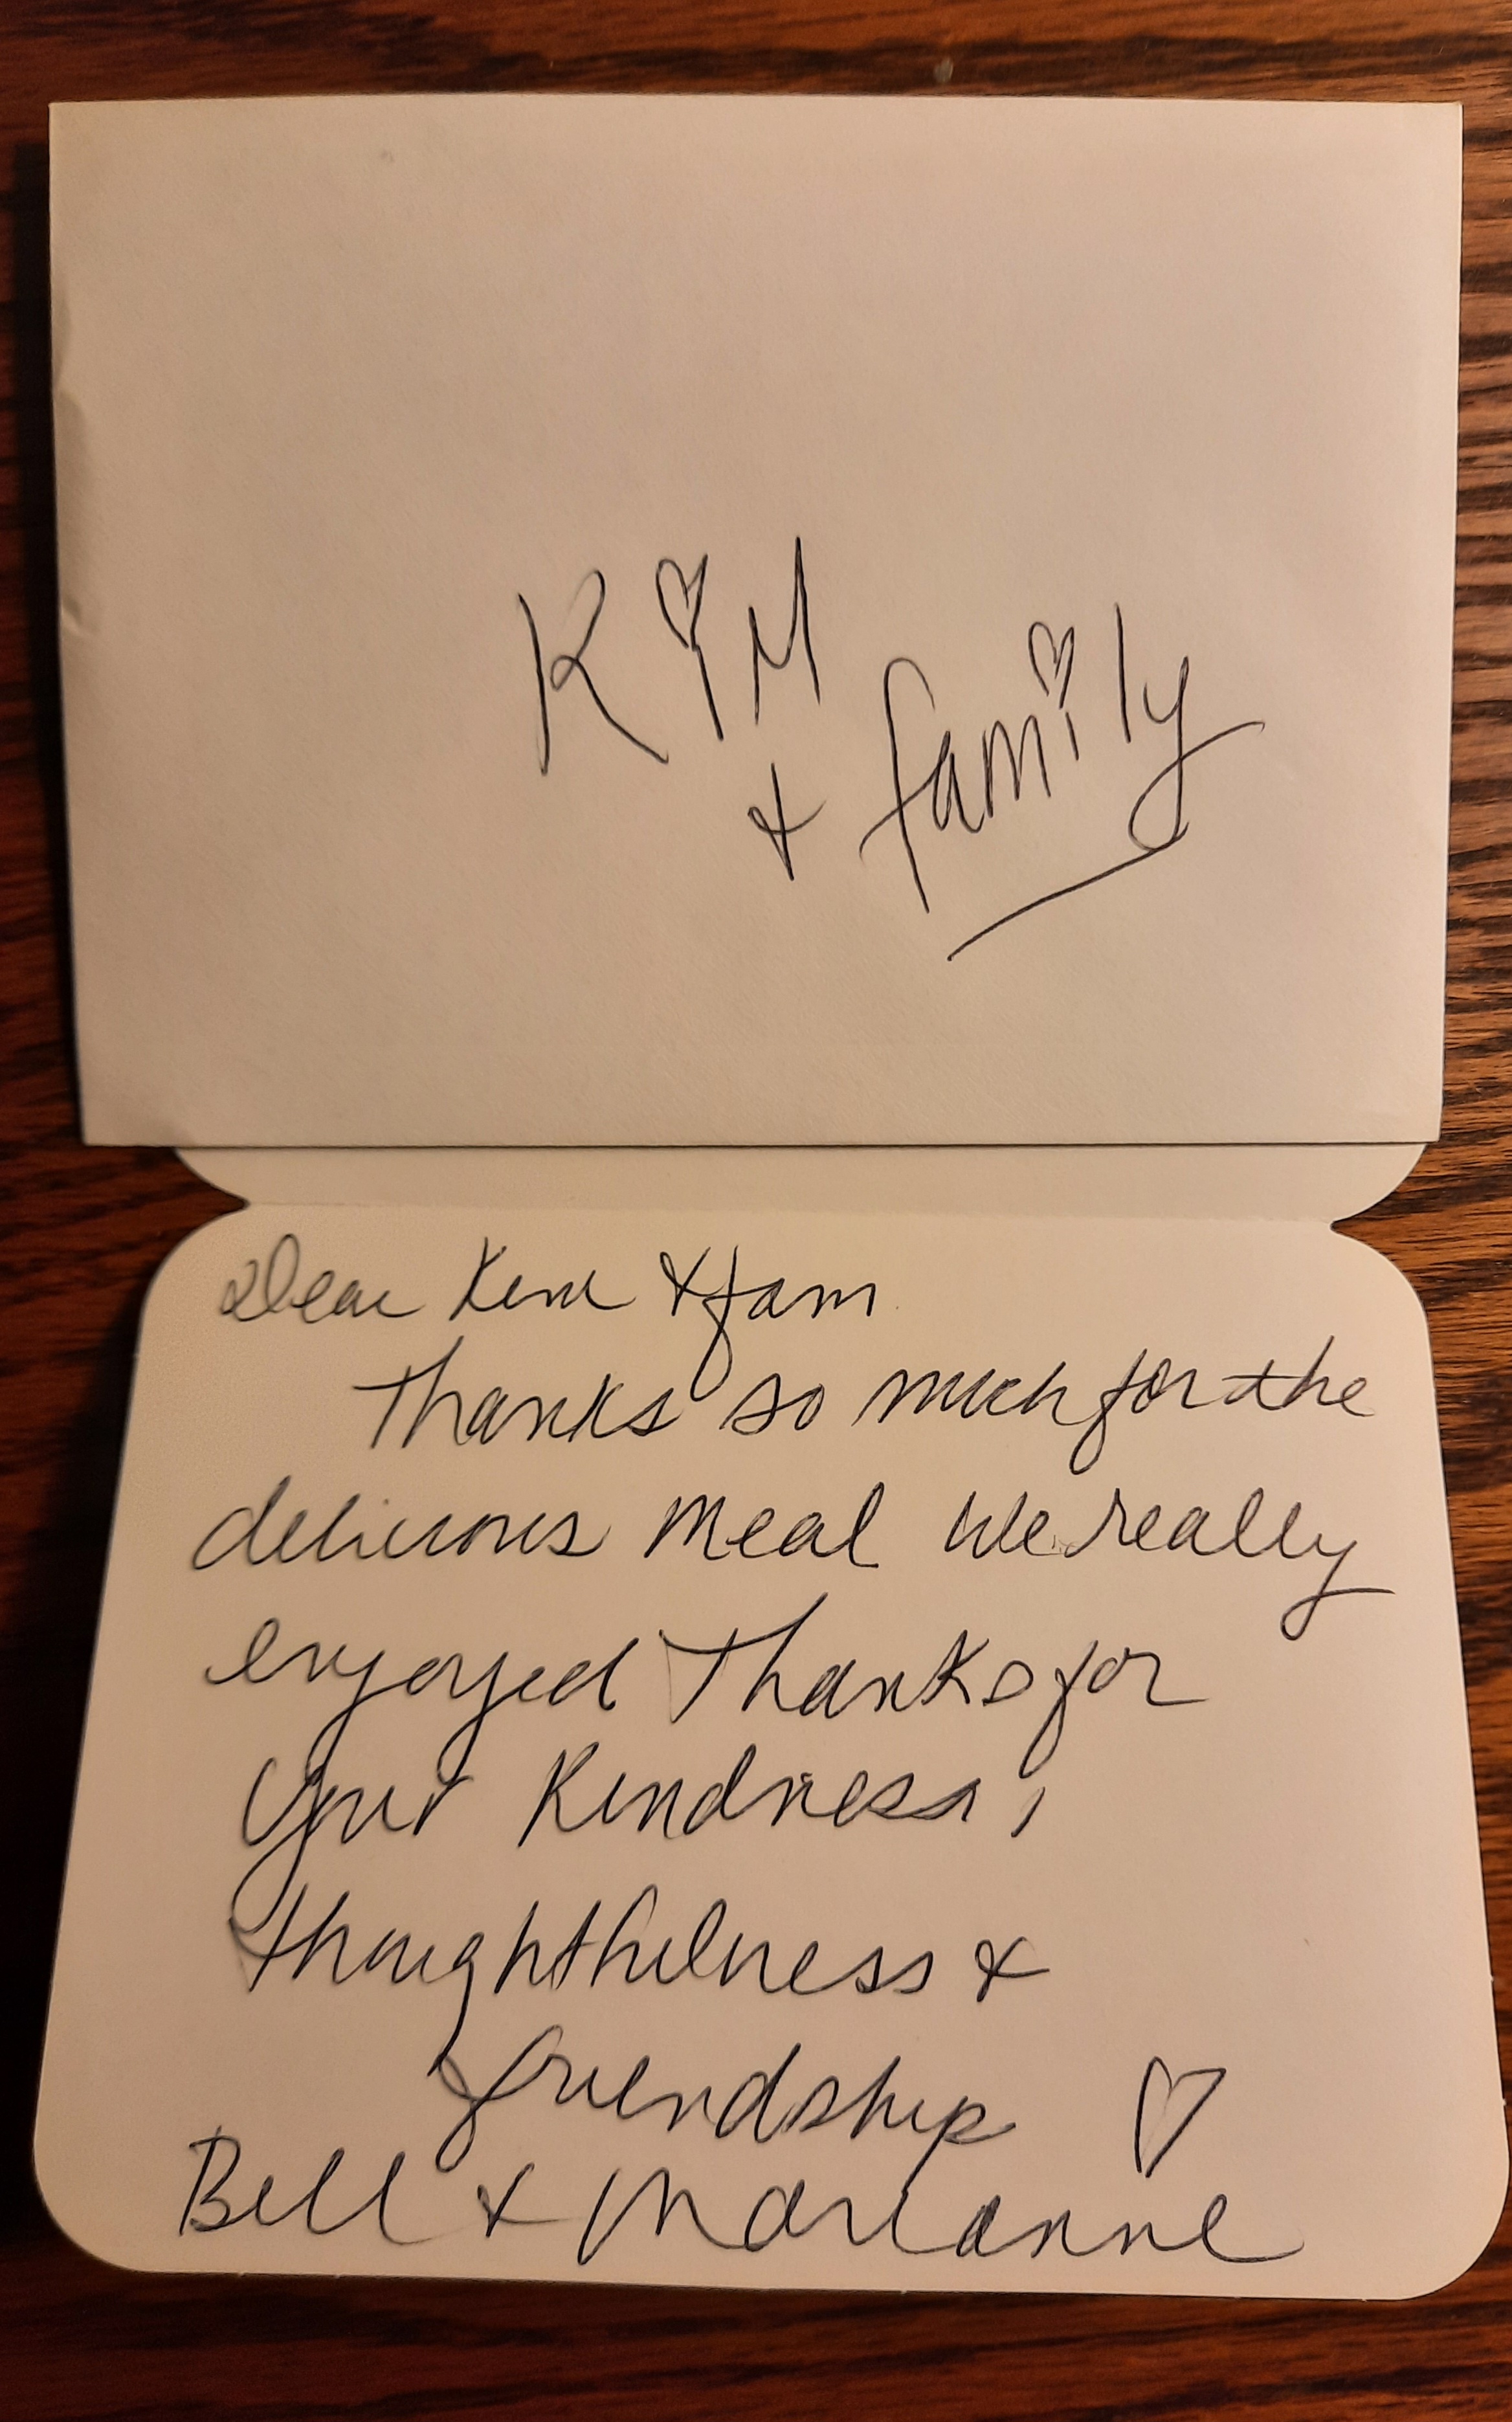 KiM
& family
Dear Kim & fam
Thanks so much for the
delicious meal We really
enjoyed Thanks for
your kindness,
thoughtfulness &
friendship ♡
Bill & Marianne